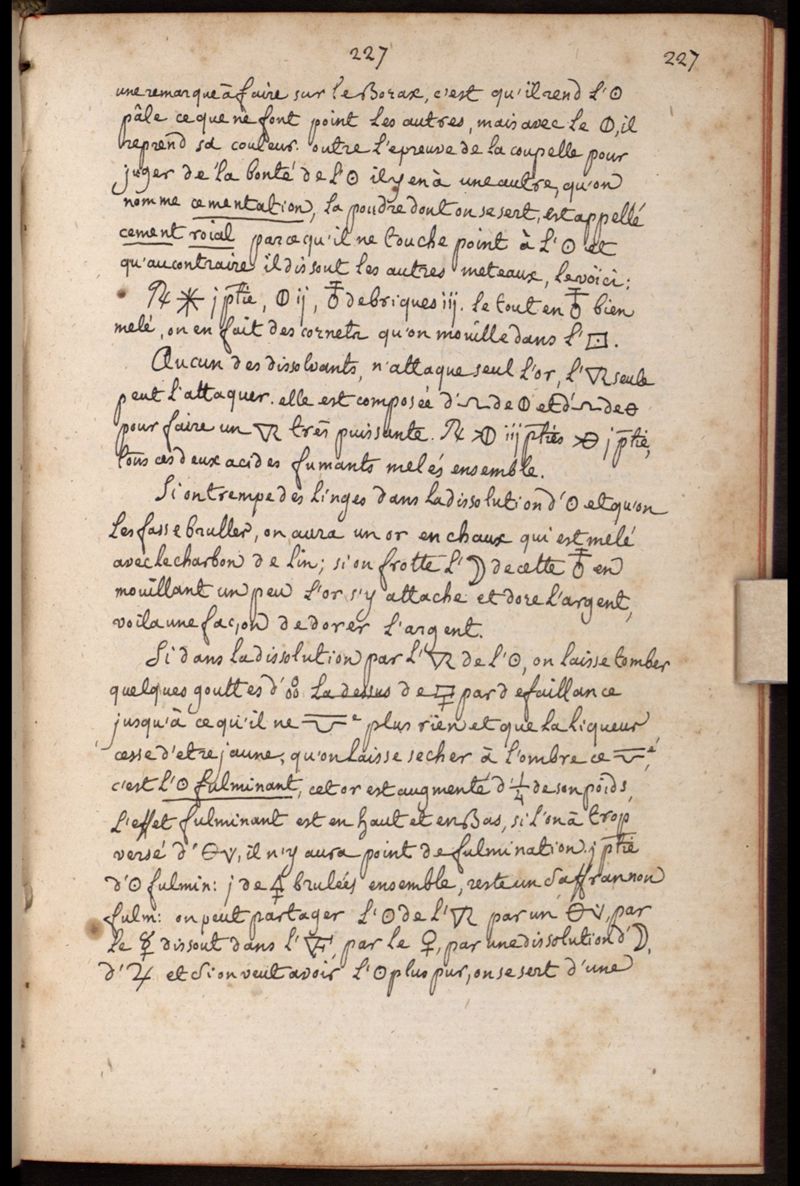 227 227
une remarque à faire sur le Borax, c'est qu'il rend l'☉
pâle ce que ne font point les autres, mais avec le 🜕, il
reprend sa couleur. outre l'epreuve de la coupelle pour
juger de la bonté de l'☉ il y en à une autre, qu'on
nomme cementation, la poudre dont on se sert, est appellé
cement roial parce qu'il ne touche point à l'☉ et
qu'au contraire il dissout les autres meteaux, le voici:
♃ ✶ j ptie, 🜕 ij, de briques iij. le tout en bien
melé, on en fait des cornets qu'on mouille dans l'⊡.
Aucun des dissolvants, n'attaque seul l'or, l'🜆 seule
peut l'attaquer. elle est composée d' de 🜕 et d' de 🜔
pour faire un 🜆 tres puissante. ♃ 🜕 iij pties j ptie,
tous ces deux acides fumants melés ensemble.
Si on trempe des linges dans la dissolution d'☉ et qu'on
les fasse bruller, on aura un or en chaux qui est melé
avec le charbon de lin; si on frotte l'☽ de cette en
mouillant un peu l'or s'y attache et dore l'argent,
voila une façon de dorer l'argent.
Si dans la dissolution par l'🜆 de l'☉, on laisse tomber
quelques gouttes d' la dessus de par defaillance
jusqu'à ce qu'il ne plus rien et que la liqueur
cesse d'etre jaune; qu'on laisse secher à l'ombre ce
c'est l'☉ fulminant, cet or est augmenté d'¼ de son poids,
l'effet fulminant est en haut et en Bas, si l'on à trop
versé d' , il n'y aura point de fulmination. j ptie
d'☉ fulmin: j de 🜍 brulées ensemble, reste un Saffran non
fulm: on peut partager l'☉ de l'🜆 par un , par
le ☿ dissout dans l' , par le ♀, par une dissolution d'☽,
d'♃ et Si on veut avoir l'☉ plus pur, on se sert d'une